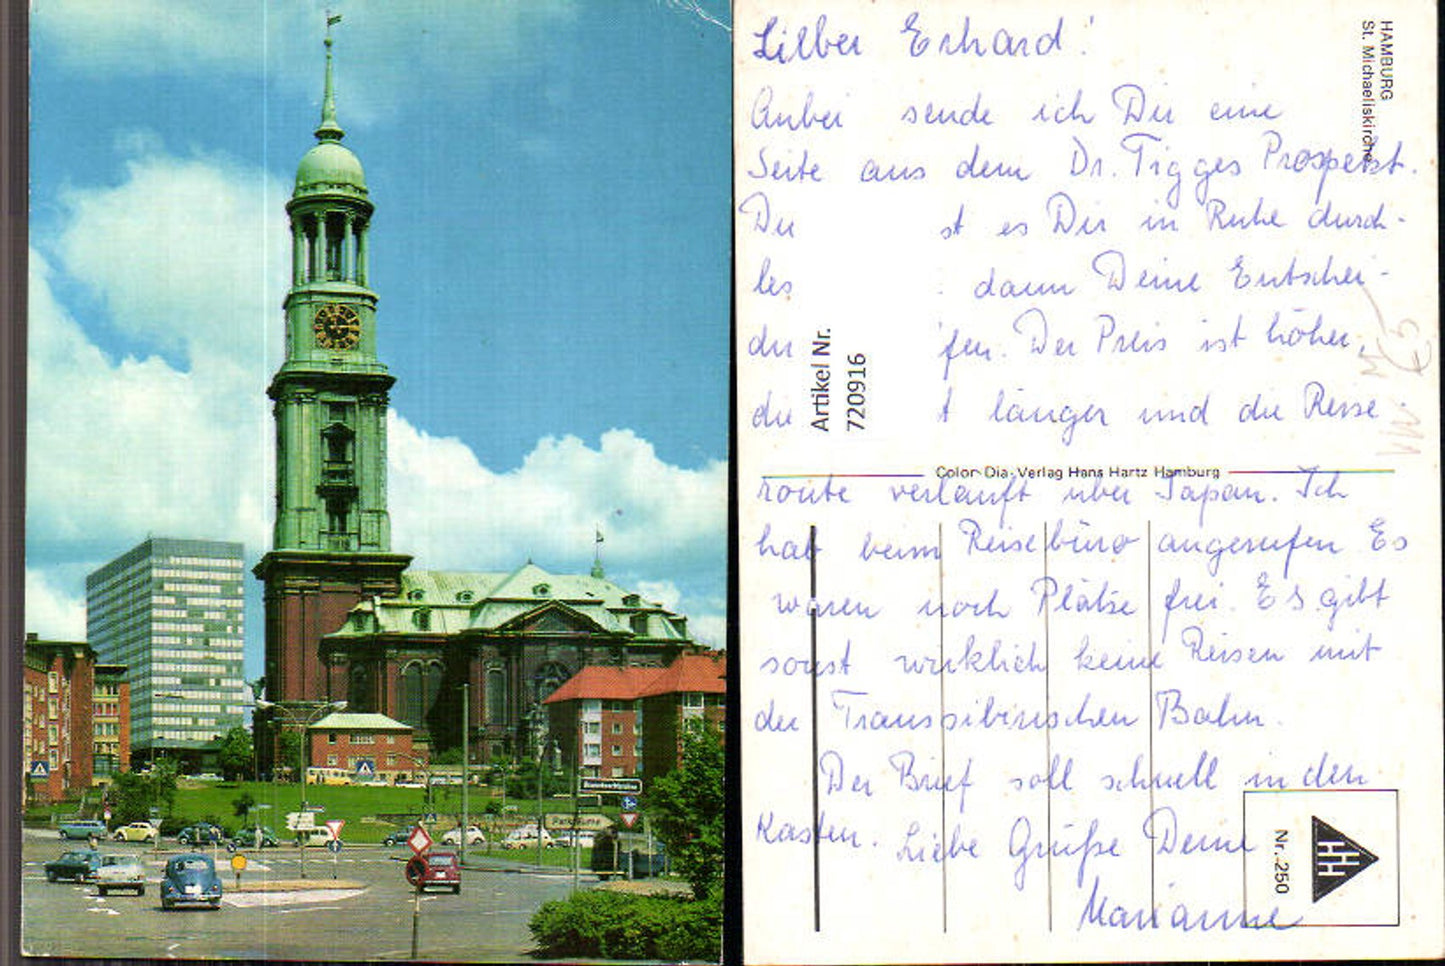 Lieber Erhard!
Anbei sende ich Dir eine
Seite aus dem Dr. Tigges Prospekt.
Du st es Dir in Ruhe durch-
les dann Deine Entschei-
du fen. Der Preis ist höher,
die t länger und die Reise-
route verläuft über Japan. Ich
hab beim Reisebüro angerufen. Es
waren noch Plätze frei. Es gibt
sonst wirklich keine Reisen mit
der Transsibirischen Bahn.
Der Brief soll schnell in den
Kasten. Liebe Grüße Deine
Marianne
HAMBURG
St. Michaeliskirche
Artikel Nr.
720916
Color-Dia-Verlag Hans Hartz Hamburg
Nr. 250
HH